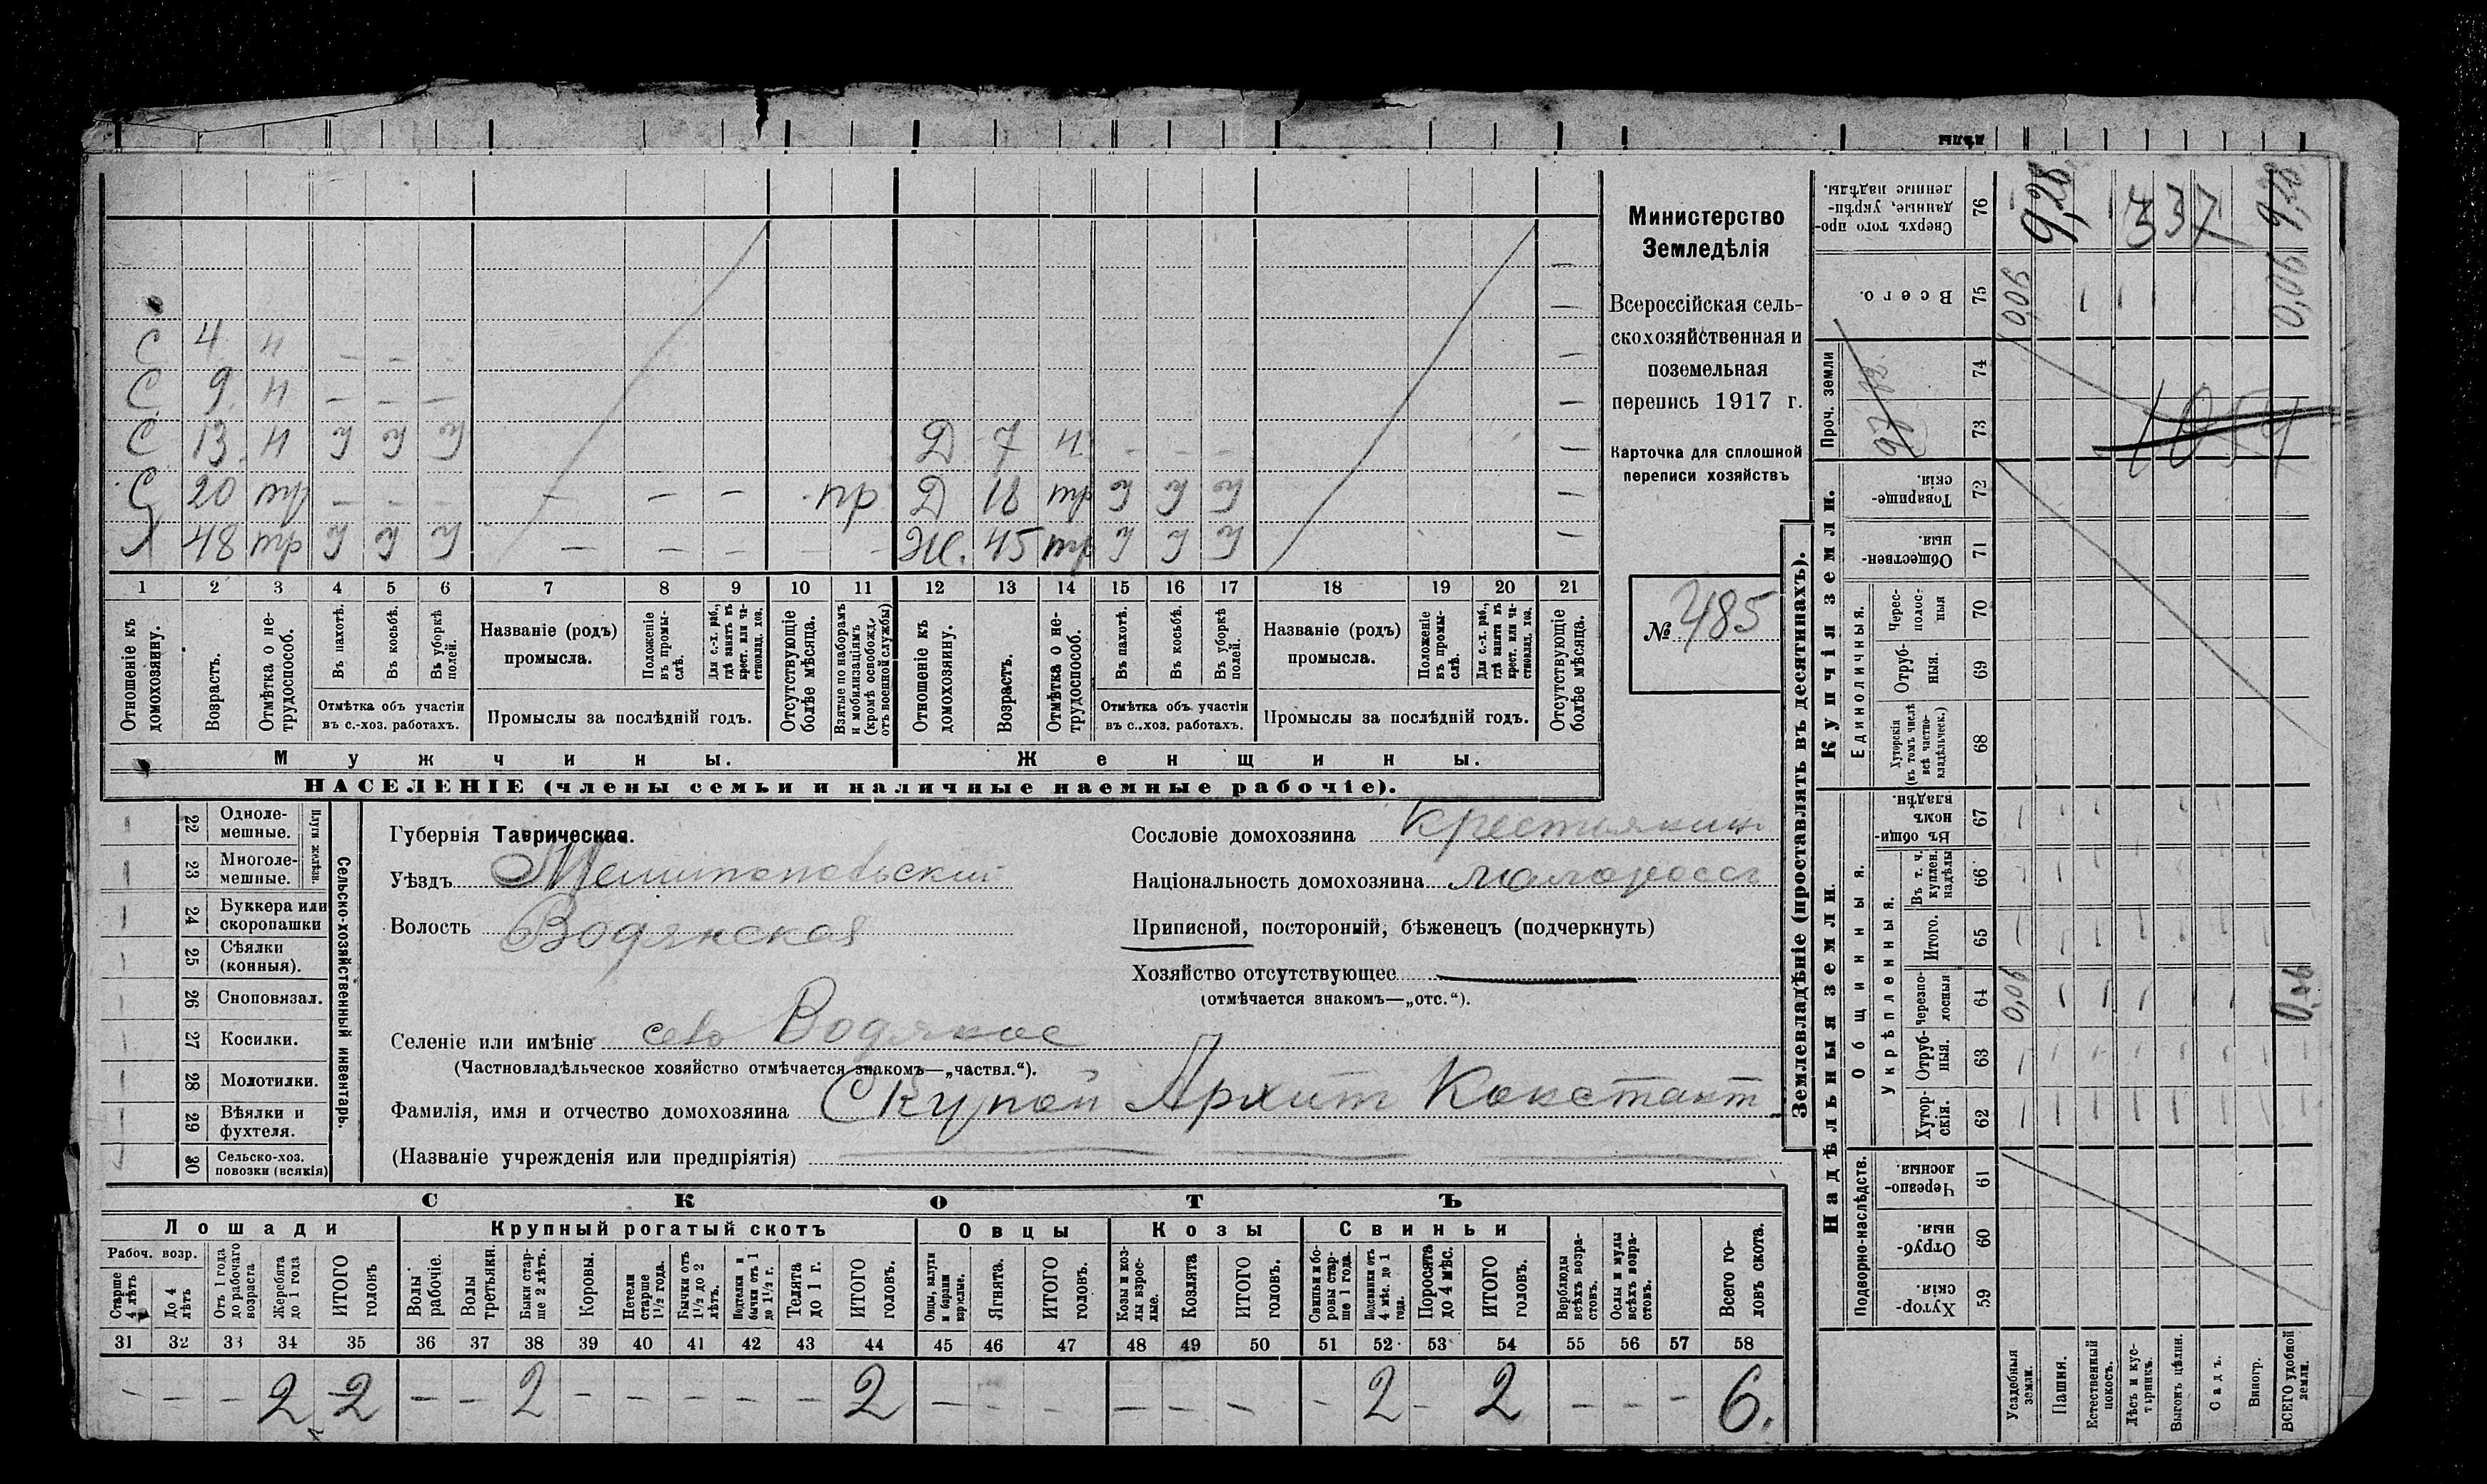 С 4 н – – –
С 9 н – – –
С 13 н
Д 7 н – – – –
С 20 тр – – – – – – пр
Д 18 тр
Х 48 тр – – – – –
Ж. 45 тр
1 2 3 4 5 6 7 8 9 10 11 12 13 14 15 16 17 18 19 20 21
Отношеніе къ домохозяину.
Возрастъ.
Отмѣтка о не-трудоспособ.
Въ пахотѣ.
Въ косьбѣ.
Въ уборкѣ полей.
Отмѣтка объ участіи
въ с.-хоз. работахъ.
Названіе (родъ)
промысла.
Положеніе въ промы-слѣ.
Для с.-х. раб., гдѣ занятъ въ крест. или ча-стновлад. хоз.
Промыслы за послѣдній годъ.
Отсутствующіе болѣе мѣсяца.
Взятые по наборамъ и мобилизаціямъ (кромѣ освобожд. отъ военной службы)
Отношеніе къ домохозяину.
Возрастъ.
Отмѣтка о не-трудоспособ.
Въ пахотѣ.
Въ косьбѣ.
Въ уборкѣ полей.
Отмѣтка объ участіи
въ с.-хоз. работахъ.
Названіе (родъ)
промысла.
Положеніе въ промы-слѣ.
Для с.-х. раб., гдѣ занята въ крест. или ча-стновлад. хоз.
Промыслы за послѣдній годъ.
Отсутствующіе болѣе мѣсяца.
Мужчины.
Женщины.
НАСЕЛЕНІЕ (члены семьи и наличные наемные рабочіе).
Министерство
Земледѣлія
Всероссійская сель-
скохозяйственная и
поземельная
перепись 1917 г.
Карточка для сплошной
переписи хозяйствъ
№ 485
22 Одноле-мешные.
23 Многоле-мешные.
Плуги желѣзн.
24 Буккера или скоропашки
25 Сѣялки (конныя).
26 Сноповязал.
27 Косилки.
28 Молотилки.
29 Вѣялки и фухтеля.
30 Сельско-хоз. повозки (всякія)
Сельско-хозяйственный инвентарь.
Губернія Таврическая.
Уѣздъ Мелитопольскій
Волость Водянская
Селеніе или имѣніе село Водяное
(Частновладѣльческое хозяйство отмѣчается знакомъ—„частвл.“).
Фамилія, имя и отчество домохозяина Скупой Архип Констант
(Названіе учрежденія или предпріятія)
Сословіе домохозяина Крестьянин
Національность домохозяина малоросс
Приписной, посторонній, бѣженецъ (подчеркнуть)
Хозяйство отсутствующее
(отмѣчается знакомъ—„отс.“).
СКОТЪ
Лошади
Крупный рогатый скотъ
Овцы
Козы
Свиньи
Рабоч. возр.
Старше 4 лѣтъ
До 4 лѣтъ
Отъ 1 года до рабочаго возраста
Жеребята до 1 года
ИТОГО головъ
Волы рабочіе.
Волы третьяки.
Быки стар-ше 2 лѣтъ.
Коровы.
Нетели старше 1½ года.
Бычки отъ 1½ до 2 лѣтъ.
Подтелки и бычки отъ 1 до 1½ г.
Телята до 1 г.
ИТОГО головъ.
Овцы, валухи и бараны взрослые.
Ягнята.
ИТОГО головъ.
Козы и коз-лы взрос-лые.
Козлята
ИТОГО головъ.
Свиньи и бо-ровы стар-ше 1 года.
Подсвинки отъ 4 мѣс. до 1 года.
Поросята до 4 мѣс.
ИТОГО головъ.
Верблюды всѣхъ возра-стовъ.
Ослы и мулы всѣхъ возра-стовъ.
Всего го-ловъ скота.
31 32 33 34 35 36 37 38 39 40 41 42 43 44 45 46 47 48 49 50 51 52 53 54 55 56 57 58
– – – 2 2 – – 2 – – – – – 2 – – – – – – – 2 – 2 – – – 6.
Землевладѣніе (проставлять въ десятинахъ).
Надѣльныя земли.
Купчія земли.
Проч. земли
Подворно-наслѣдств.
Общинныя.
Укрѣпленныя.
Единоличныя.
59 Хутор-скія.
60 Отруб-ныя.
61 Черезпо-лосныя
62 Хутор-скія.
63 Отруб-ныя.
64 Черезпо-лосныя 0,06 0,06
65 Итого.
66 Въ т. ч. куплен. надѣлы
67 Въ общи-номъ владѣн.
68 Хуторскія (въ томъ числѣ всѣ частно-владѣльческ.)
69 Отруб-ныя.
70 Черес-полос-ныя
71 Обществен-ныя.
72 Товарище-скія.
73
74
75 Всего. 0,06 0,06
76 Сверхъ того про-данные, укрѣп-ленные надѣлы. 9,28 337 9,28
Усадебныя земли.
Пашня.
Естественный покосъ.
Лѣсъ и кус-тарникъ.
Выгонъ цѣлин.
Садъ.
Виногр.
ВСЕГО удобной земли.